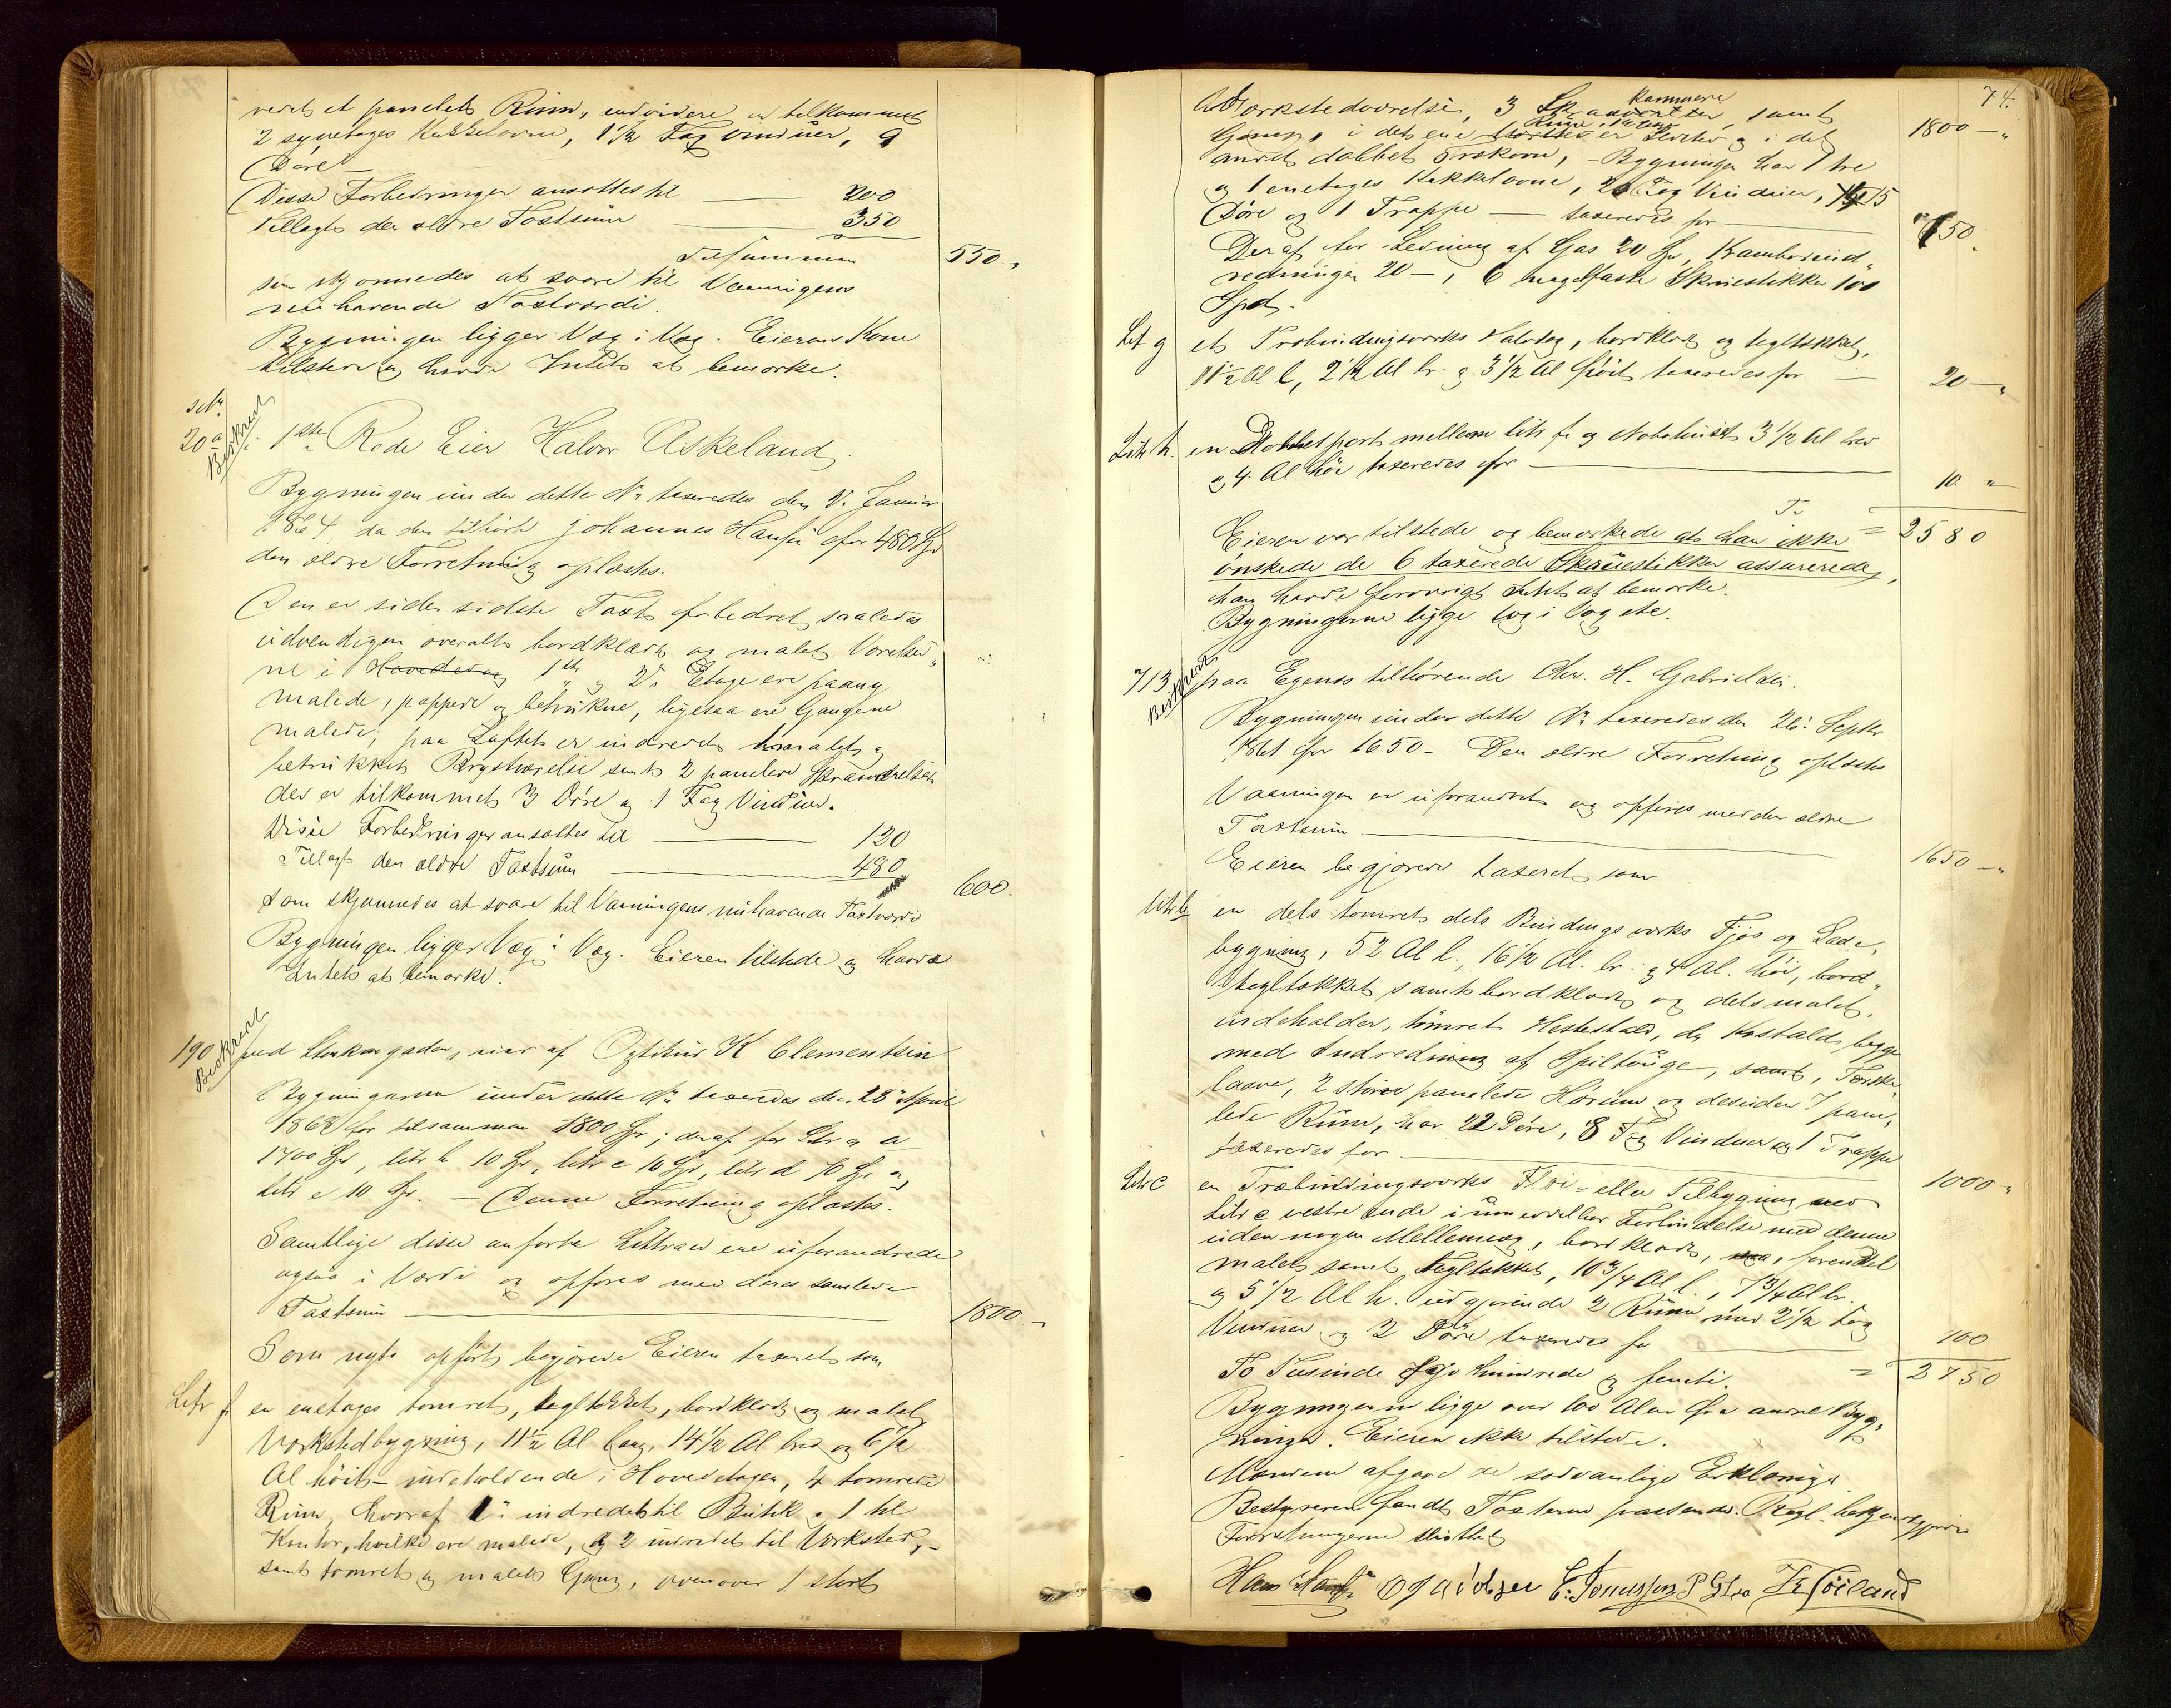 redet et panelet Rum, endvidere er tilkommet
2 syvetages Kakkelovne, 1 1/2 Fag vinduer, 9
Døre
Disse Forbedringer ansattes til — 200
Tillagt den ældre Taxtsum — 350
Tilsammen 550 „
som skjønnedes at svare til Vaaningens
nuhavende Taxtværdi.
Bygningen ligger Væg i Væg. Eierens Kone
tilstede og havde Intet at bemærke.
20 a
Beskrevet
1ste Rode Eier Halvor Askeland.
Bygningen under dette No taxeredes den Januar
1864, da den tilhørte Johannes Hansen for 480 Spd
den ældre Forretning oplæstes.
Den er siden sidste Taxt forbedret saaledes
udvendigen overalt bordklædt og malet. Værelser„
ne i Hovedetag 1ste og 2den Etage ere paany
malede, pappede og betrukne, ligesaa ere Gangene
malede; paa Loftet er indredet et malet og
betrukket Brystværelse samt 2 panelede Skraaværelser
der er tilkommet 3 Døre og 1 Fag Vinduer.
Disse Forbedringer ansattes til — 120
Tillagt den ældre Taxtsum — 480
600.
som skjønnedes at svare til Vaaningens nuhavende Taxtværdi
Bygningen ligger Væg i Væg. Eieren tilstede og havde
Intet at bemærke.
190
Beskrevet
ved eies af Optikus K Clementsen
Bygningerne under dette No taxeredes den 28 April
1868 for tilsammen 1800 Spd; deraf for Litr a
1700 Spd, litr b 10 Spd, litr c 10 Spd, litr d 70 Spd og
litr e 10 Spd. — Denne Forretning oplæstes.
Samtlige disse anførte Littraer ere uforandrede
ogsaa i Værdi og opføres med deres samlede
Taxtsum — 1800 —
Som nyt opført begjærede Eieren taxeret som
Litr f. en enetages tømret, tegltækket, bordklædt og malet
Værkstedbygning, 11 1/2 Al lang, 14 1/2 Al bred og 6 1/2
Al høit – indeholdende i Hovedetagen, 4 tømrede
Rum, hvoraf 1 indredet til Butik og 1 til
Kontor, hvilke ere malede, og 2 indredet til Værksted, –
samt tømret og malet Gang, ovenover 1 stort
74.
Værkstedværelse, 3 Skraaværelser Kammere samt
Gang, i det ene Rum er og i det
andet dobbelt Forskorn, – Bygningen har 1 tre
og 1 enetages Kakkelovne, 20 Fag Vinduer, 15
Døre og 1 Trappe — taxeredes for —
1800 — „
750.
Deraf for Ledning af Gas 20 Spd, Kamborind„
redningen 20 –, 6 magelfaste Skruestikker 100
Spd.
Lit g et Træbindingsværks Halvtag, bordklædt og tegltækket,
11 1/2 Al l, 2 1/2 Al br. og 3 1/2 Al høit taxeredes for — 20 — „
Litr h. en Dobbeltport mellem litr f. og Nabohuset 3 1/2 Al bred
og 4 Al høi taxeredes for — 10 „
Tr = 2580
Eieren var tilstede og bemærkede at han ikke
ønskede de 6 taxerede Skruestikker assurerede,
han havde forøvrigt Intet at bemærke.
Bygningerne ligge Væg i Væg etc.
713
Beskrevet
paa Egenæs tilhørende Chr. H. Gabrielsen.
Bygningen under dette No taxeredes den 26. Septbr
for 1650 – Den ældre Forretning oplæstes
Vaaningen er uforandret og opføres med den ældre
Taxtsum — 1650 — „
Eieren begjærede taxeret som
litr b en dels tømret dels Bindingsværks Fjøs og Lade„
bygning, 52 Al l., 16 1/2 Al. br. og 4 Al. høi, bord„
tegltækket samt bordklædt og dels malet,
indeholder, tømret Hestestald, do Kostald, begge
med Indredning af Spiltouge, samt, Tærske
laave, 2 store panelede Hørum og desuden 7 pane„
lede Rum, har 22 Døre, 8 Fag Vinduer og 1 Trappe
taxeredes for — 1000 „
Litr c en Træbindingsværks Fløi- eller Tilbygning ved
litr c vestre Ende i umiddelbar Forbindelse med denne
uden nogen Mellemvæg, bordklædt, forendel
malet samt tegltækket, 10 3/4 Al l., 7 3/4 Al br.
og 5 1/2 Al h. udgjørende 2 Rum med 2 1/2 Fag
Vinduer og 2 Døre taxeredes for — 100
To Tusinde Syv hundrede og femti. = 2750
Bygningerne ligge over 100 Alen fra andre Byg„
ninger. Eieren ikke tilstede.
Mændene afgave de sædvanlige Erklæringer.
Bestyreren fandt Taxterne passende.
Forretningerne sluttet
E. Tønnessen